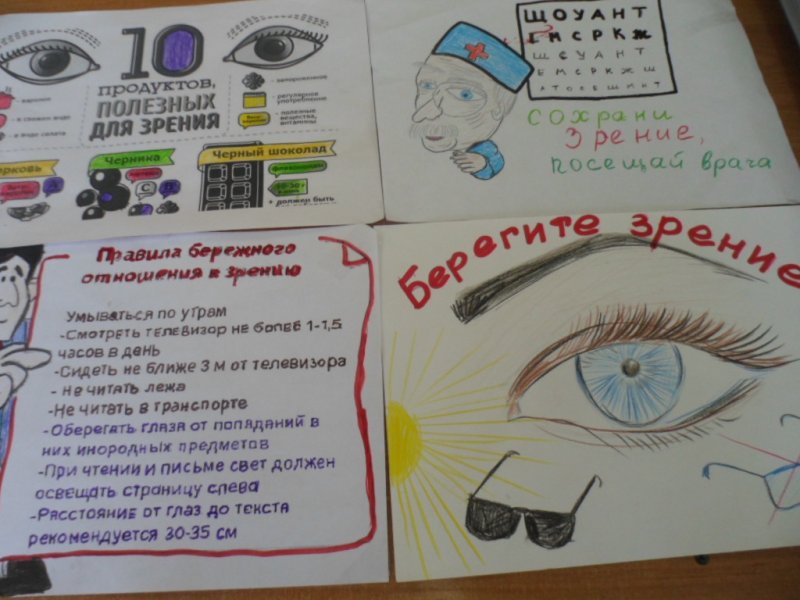 10
продуктов,
ПОЛЕЗНЫХ
ДЛЯ ЗРЕНИЯ
- замороженное
- регулярное
употребление
- полезные
вещества,
витамины
- в свежем виде
в виде салата
Черника
Черный шоколад
C
+ должен быть
ЩОУАНТ
МСРКЖ
ЩСУАНТ
ЕМСРКЖШ
сохрани
зрение,
посещай врача
Правила бережного
отношения к зрению
Умываться по утрам
-Смотреть телевизор не более 1-1,5
часов в день
-Сидеть не ближе 3 м от телевизора
- Не читать лежа
-Не читать в транспорте
-Оберегать глаза от попаданий в
них инородных предметов
-При чтении и письме свет должен
освещать страницу слева
-Расстояние от глаз до текста
рекомендуется 30-35 см
Берегите зрение